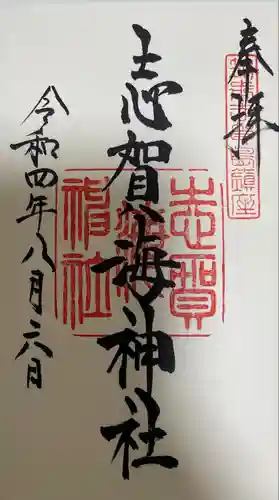 奉拝
志賀海神社
令和四年八月六日
志賀
海神社